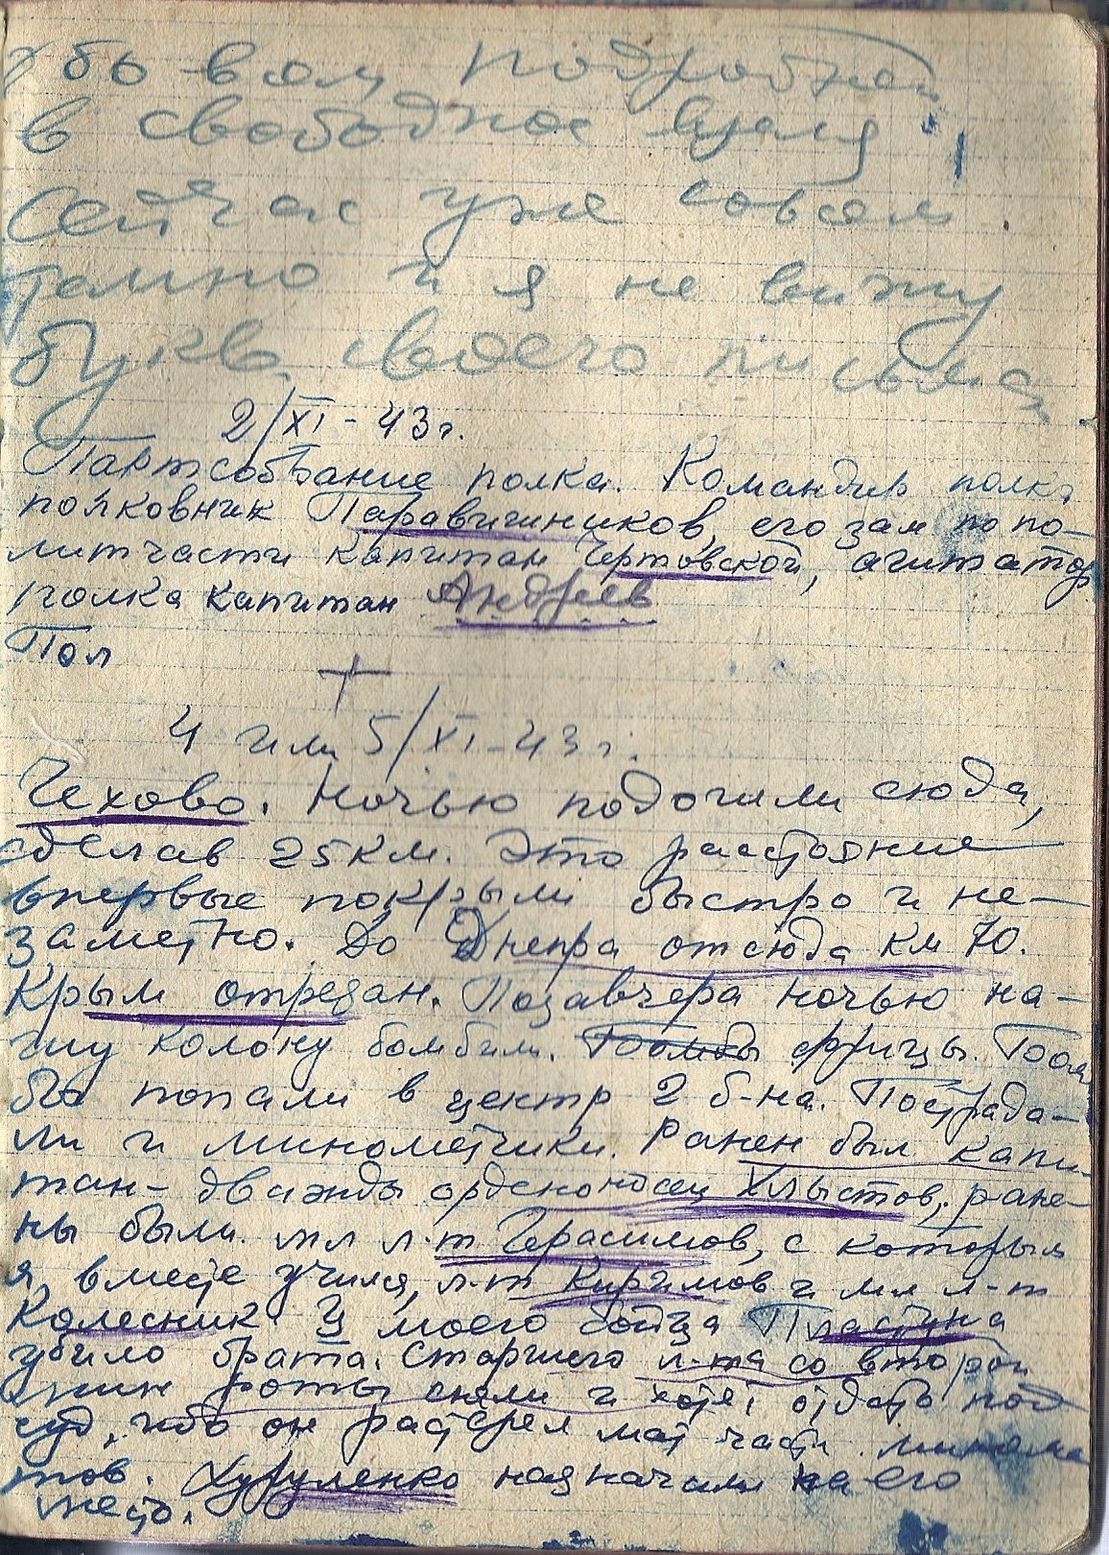 обо всем подробней
в свободное время!
Сейчас уже совсем
темно и я не вижу
букв своего письма
2/XI-43 г.
Партсобрание полка. Командир полка
полковник Паравишников, его зам по по-
литчасти капитан Чертовской, агитатор
полка капитан Андреев
Пол
4 или 5/XI-43 г.
Чехово. Ночью подошли сюда,
сделав 25 км. Это расстояние
впервые покрыли быстро и не-
заметно. До Днепра отсюда км 70.
Крым отрезан. Позавчера ночью на-
шу колону бомбили фрицы. Бом
бы попали в центр 2 б-на. Пострада-
ли и минометчики. Ранен был капи-
тан - дважды орденоносец Хлыстов, ране-
ны были мл л-т Герасимов, с которым
я вместе учился, л-т Киримов и мл л-т
Колесник. У моего бойца Пластуна
убило брата. Старшего л-та со второй
роты сняли и хотят отдать под
суд, ибо он растерял мат части миноме
тов. Хуруленко назначили на его
место.